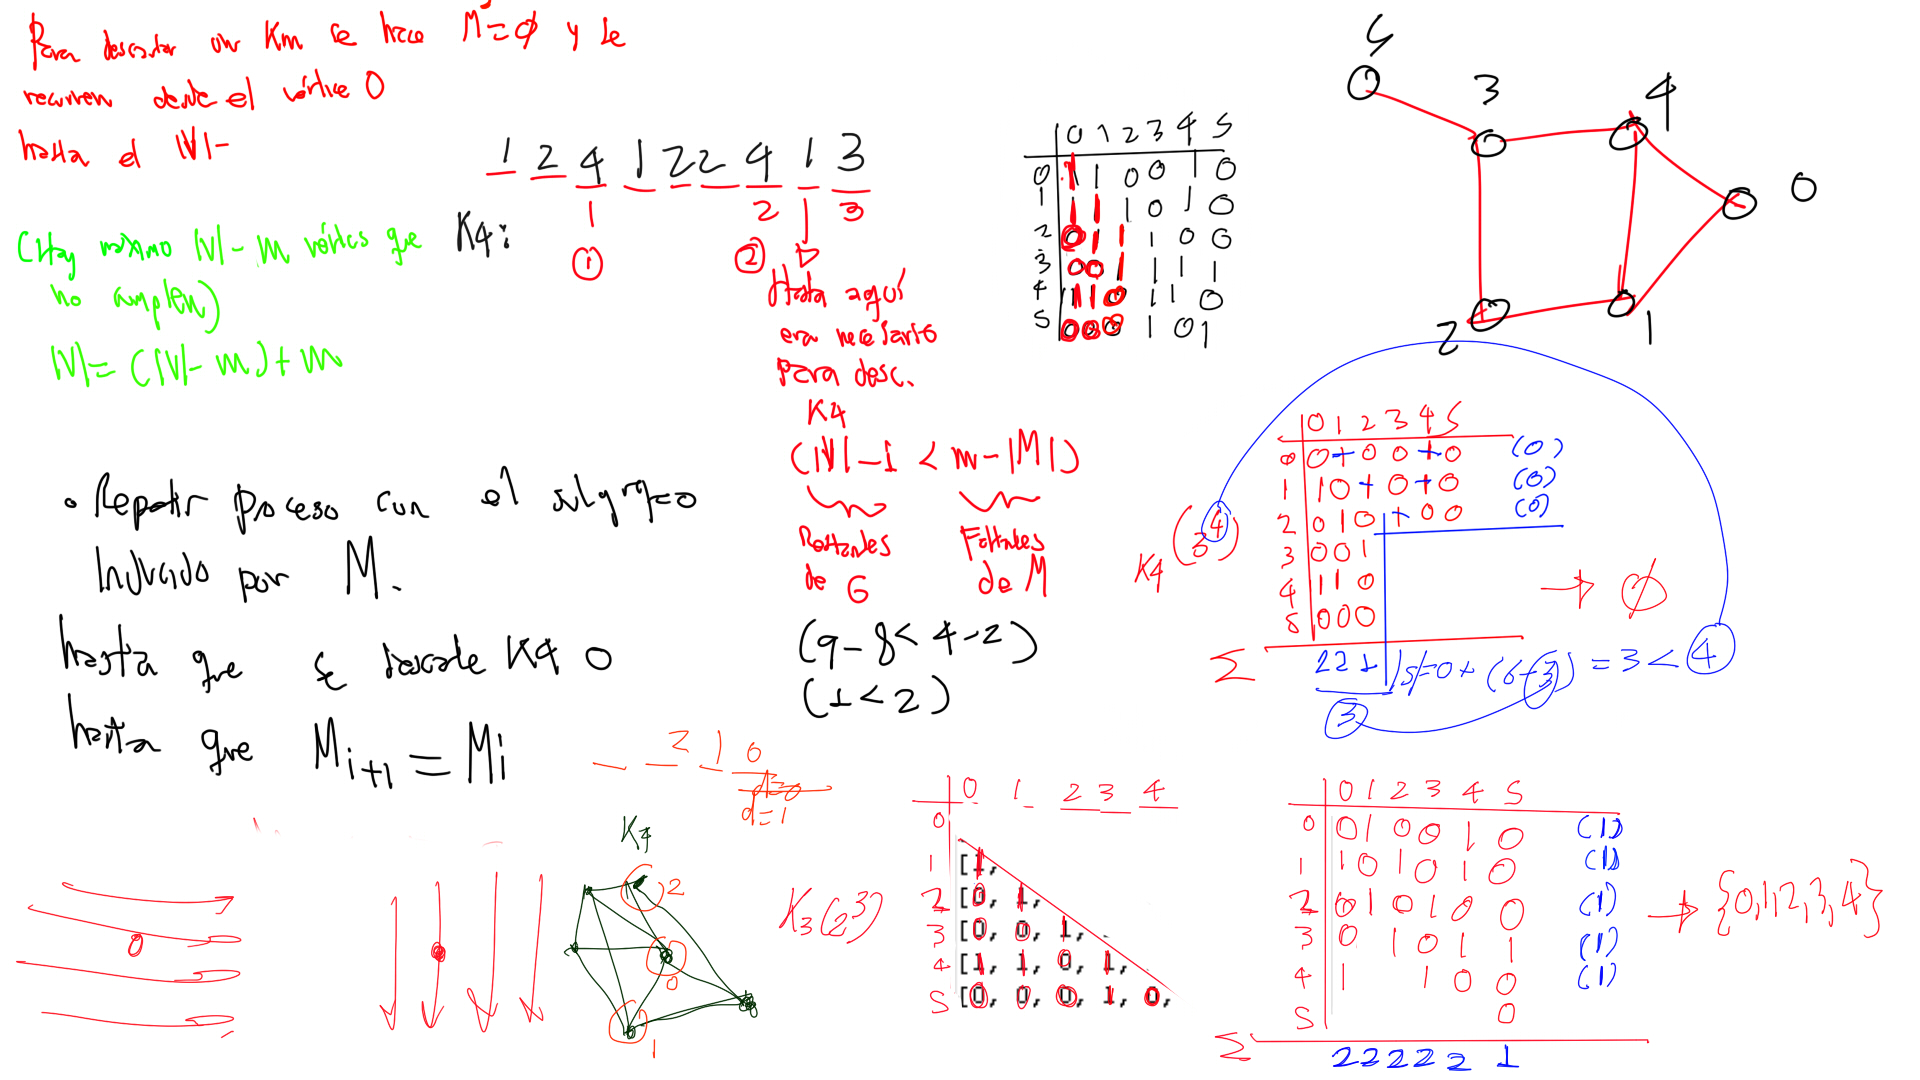 Para descartar un Km se hace M=∅ y se
recorren desde el vértice 0
hasta el |V|-
(Hay máximo |V|-m vértices que
no cumplen)
|V|=(|V|-m)+m
1 2 4 1 2 2 4 1 3
1 2 3
K4:
① ②
Hasta aquí
era necesario
para desc.
K4
(|V|-i < m-|M|)
Restantes
de G
Faltantes
de M
(9-8<4-2)
(1<2)
• Repetir proceso con el subgrafo
Inducido por M.
hasta que se descarte K4 o
hasta que Mi+1 = Mi
0 1 2 3 4 5
0 1 1 0 0 1 0
1 1 1 1 0 1 0
2 0 1 1 1 0 0
3 0 0 1 1 1 1
4 1 1 0 1 1 0
5 0 0 0 1 0 1
5
3
4
0
2
1
0 1 2 3 4 5
0 0 1 0 0 1 0 (0)
1 1 0 1 0 1 0 (0)
2 0 1 0 1 0 0 (0)
3 0 0 1
4 1 1 0
5 0 0 0
K4 (3 4)
→ ∅
Σ 2 2 1 |S|=0+(6-3)=3<4
3
2 1 0
d=0
d=1
K4
2
0
1
0
K3(2 3)
0 1 2 3 4
0
1 [1,
2 [0, 1,
3 [0, 0, 1,
4 [1, 1, 0, 1,
5 [0, 0, 0, 1, 0,
0 1 2 3 4 5
0 0 1 0 0 1 0 (1)
1 1 0 1 0 1 0 (1)
2 0 1 0 1 0 0 (1)
3 0 1 0 1 1 (1)
4 1 1 0 0 (1)
5 0
→ {0,1,2,3,4}
Σ 2 2 2 2 2 1